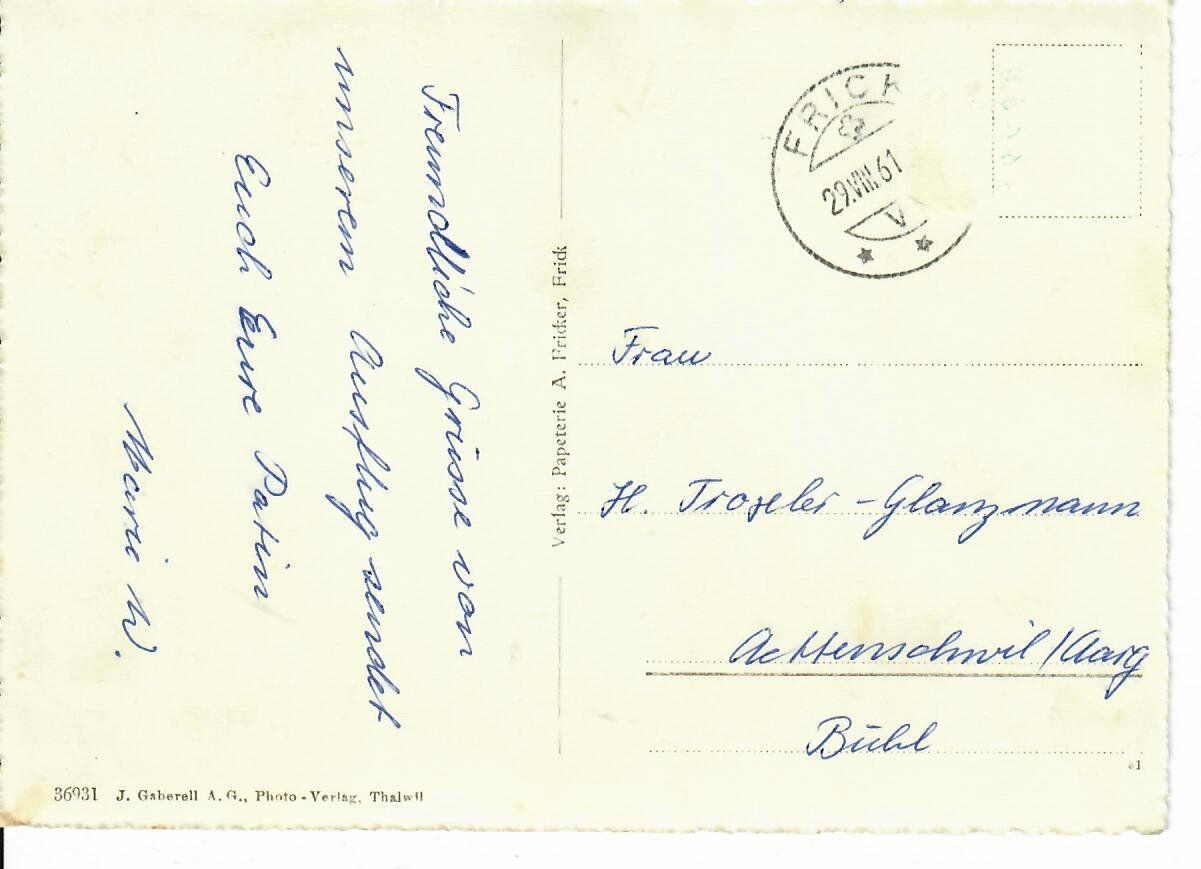 Freundliche Grüsse von
unserem Ausflug sendet
Euch Eure Patin
Marie W.
Verlag: Papeterie A. Fricker, Frick
FRICK
29.VIII.61
V
Frau
H. Troxler-Glanzmann
Aettenschwil/Aarg
Bühl
36931 J. Gaberell A.G., Photo-Verlag, Thalwil